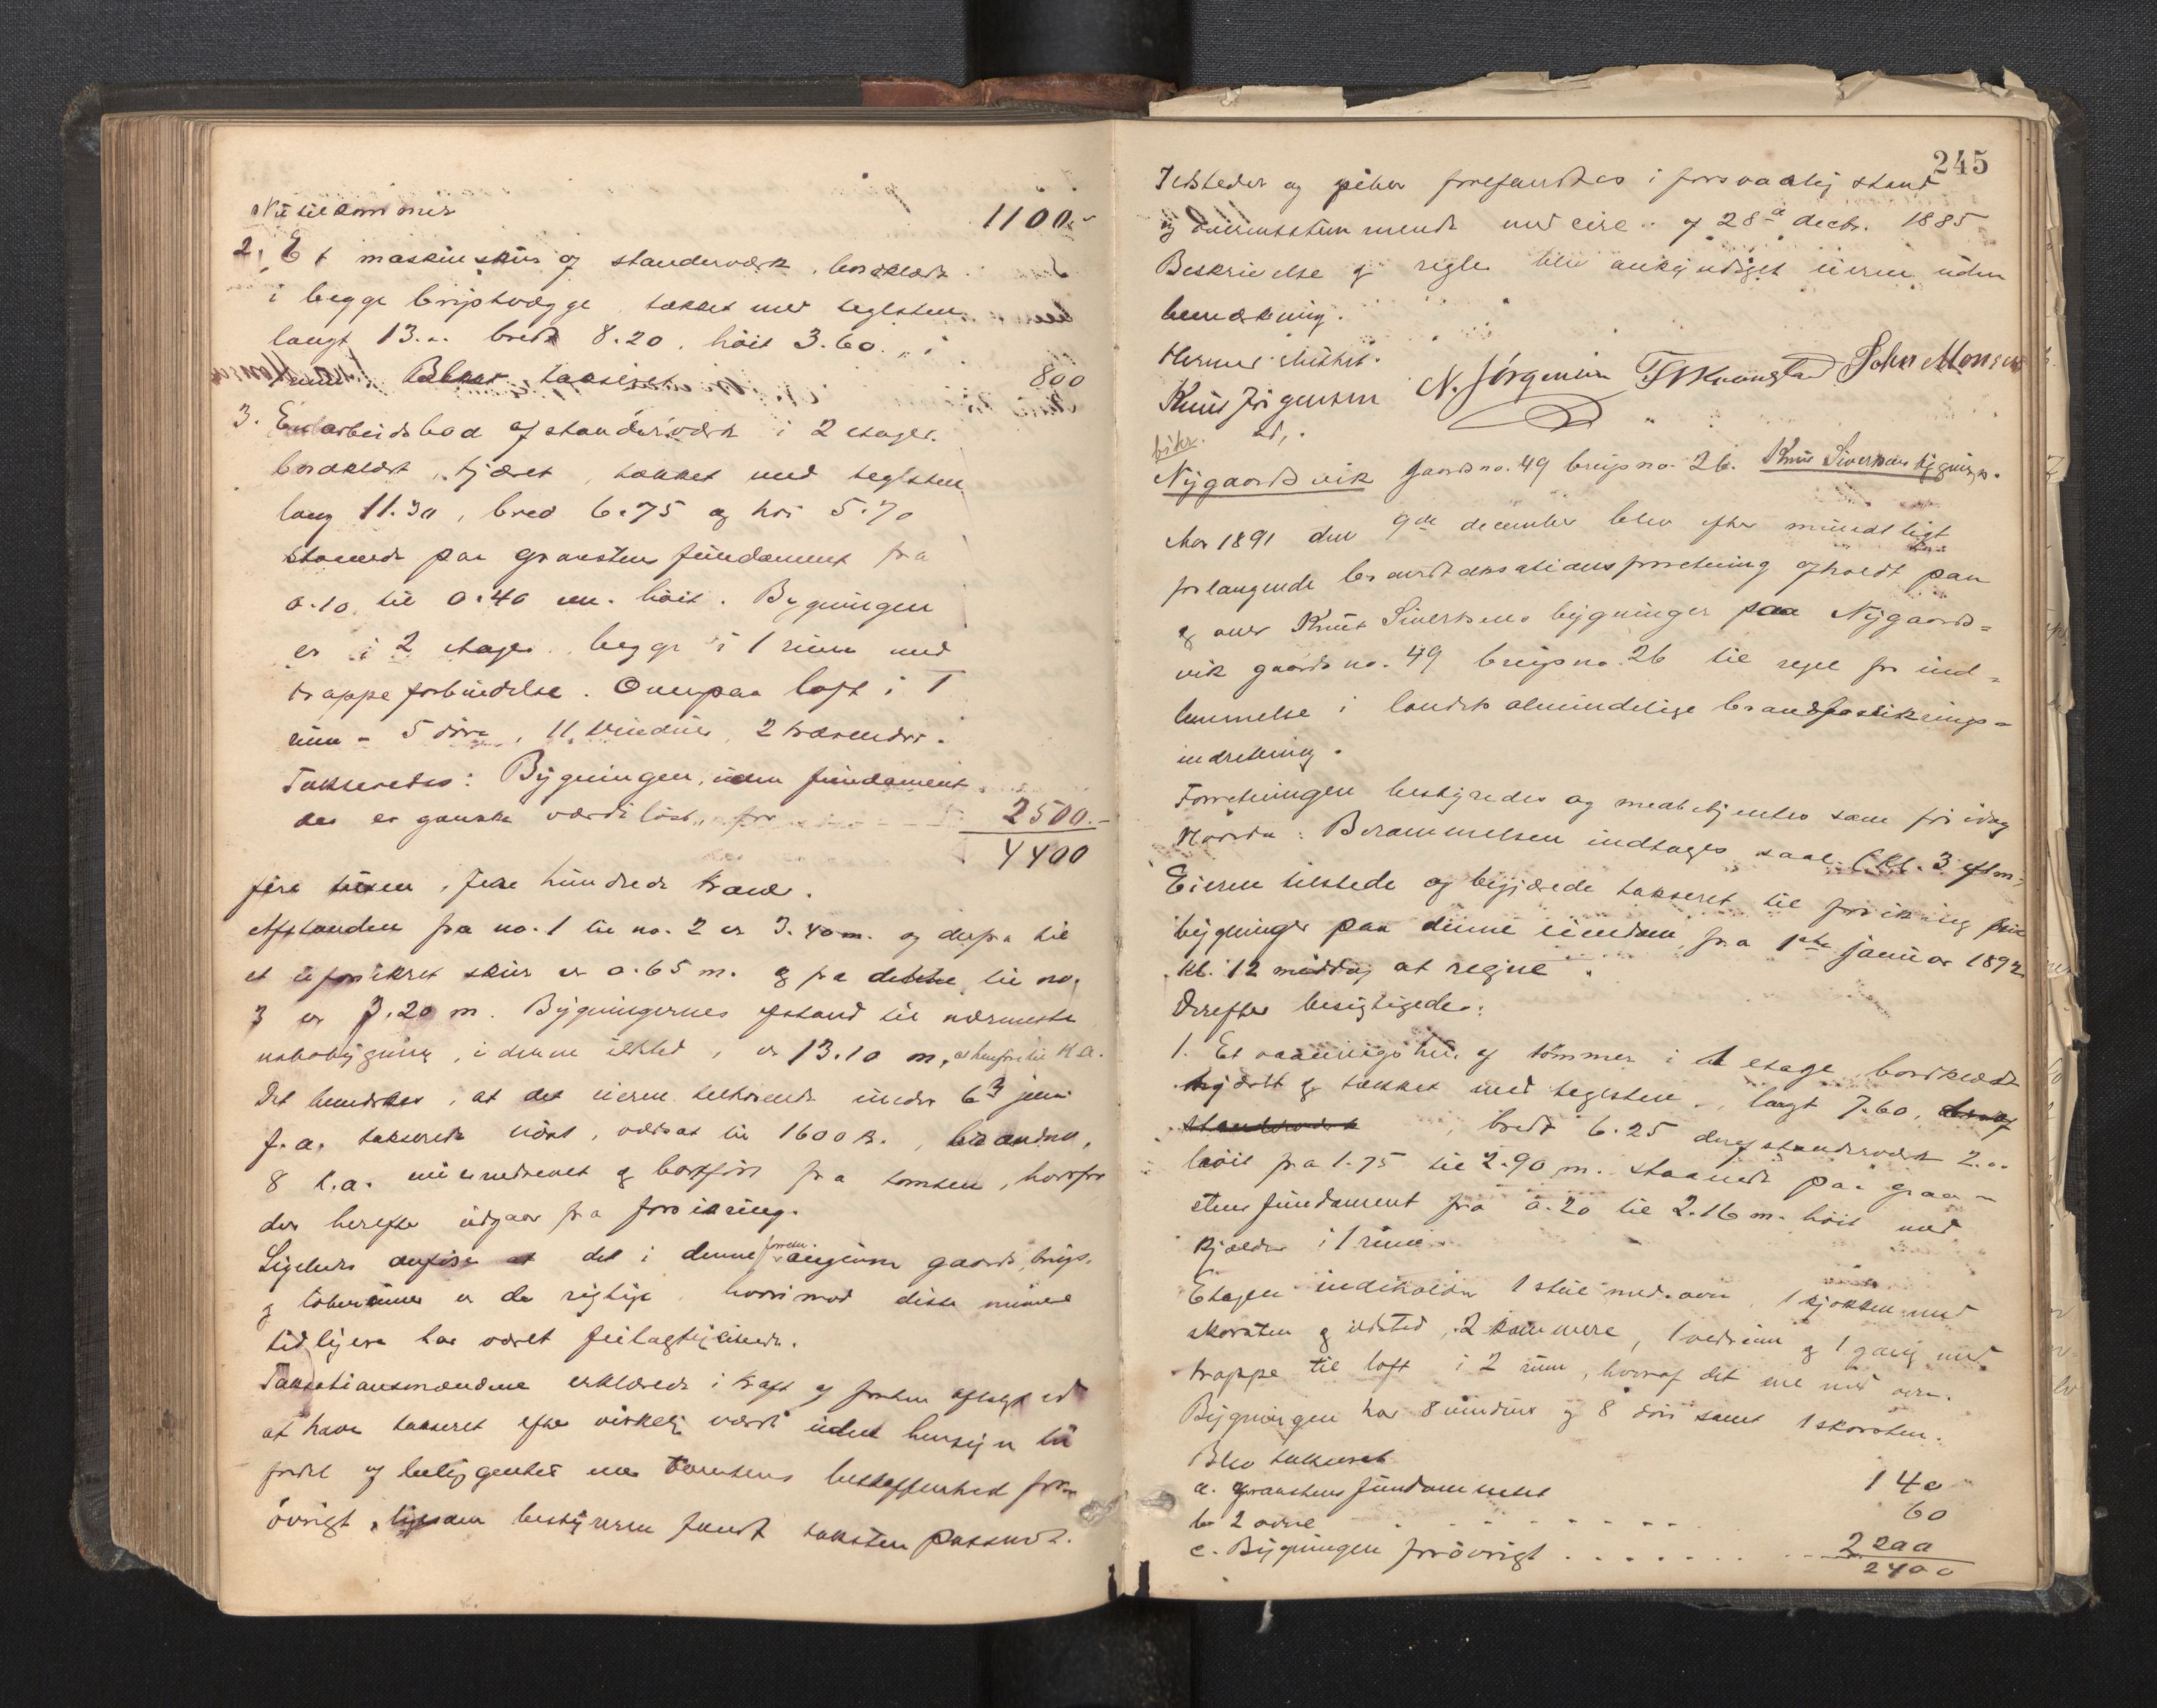 Nu tilkommer 1100.-
2. Et maskinskur af standerværk, bordklædt
i begge bripsvægge, tækket med teglsten
langt 13.-. bredt 8.20. höit 3.60.
taxeret 800
3. En arbeidsbod af standerværk i 2 etager.
bordklædt, tjæret, tækket med teglsten
lang 11.30, bred 6.75 og höi 5.70
staaende paa graastens fundament fra
0.10 til 0.40 m. höit. Bygningen
er i 2 etager. begge i 1 rum med
trappeforbindelse. Ovenpaa loft i 1
rum - 5 döre, 11 vinduer, 2
Takseredes: Bygningen, uden fundament
der er ganske værdilöst, for 2500.-
4400
fire tusen, fire hundrede kroner.
Afstanden fra no. 1 til no. 2 er 3.40 m. og derfra til
et uforsikret skur er 0.65 m. og fra dette til no.
3 er 3.20 m. Bygningernes afstand til nærmeste
nabobygning, i denne, er 13.10 m,
Det bemærkes, at det eieren tilhörende under 6 juni
f. a. takserede, værdsat til 1600 kr.,
8 l.a. nu er nedrevet og bortfört fra tomten, hvorfor
det herefter udgaar fra forsikring.
Ligeledes anföres at det i denne forretn. angivne gaards, brugs.
og er de rigtige, hvorimod disse numere
tidligere har været feilagtig
Taksationsmændene erklærede i kraft af forhen aflagt ed
at have takseret efter virkelig værdi uden hensyn til
fordel af beliggenhed eller tomtens beskaffenhed for-
övrigt, ligesom bestyreren fandt taksten passende.
245
Ildsteder og piber forefandtes i forsvarlig stand
og overensstemmende med circ. af 28de decbr. 1885
Beskrivelse og regler blev ankyndiget eieren uden
bemærkning.
Knut Jörgensen N. Jörgensen John Monsen
Nygaardsvik gaardsno. 49 brugsno. 26. Knut Sivertsens bygninger.
Aar 1891 den 9de december blev efter mundtligt
forlangende brandtaxationsforretning afholdt paa
og over Knut Sivertsens bygninger paa Nygaards-
vik gaards no. 49 brugsno. 26 til regel for ind-
lemmelse i landets almindelige brandforsikrings-
indretning.
Forretningen bestyredes og medbetjentes som för idag
Berammelsen indtages saal. (Kl. 3 eftm.
Eieren tilstede og begjærede takseret til forsikring
bygninger paa denne eiendom, fra 1ste januar 1892
kl. 12 middag at regne.
Derefter besigtigedes:
1. Et vaaningshus af tömmer i 1 etage bordklædt
og tækket med teglsten, langt 7.60,
bredt 6.25 deraf standerværk 2.-
höit fra 1.75 til 2.90 m. staaende paa graa-
stens fundament fra 0.20 til 2.16 m. höit med
kjælder i 1 rum.
Etagen indeholder 1 stue med ovn, 1 kjökken med
skorsten og ildsted, 2 kammere, 1 vedrum og 1 gang med
trappe til loft i 2 rum, hvoraf det ene med ovn.
Bygningen har 8 vinduer og 8 döre samt 1 skorsten.
Blev takseret
a. graastens fundamentet 140
b. 2 ovne 60
c. Bygningen forövrigt 2200
2400